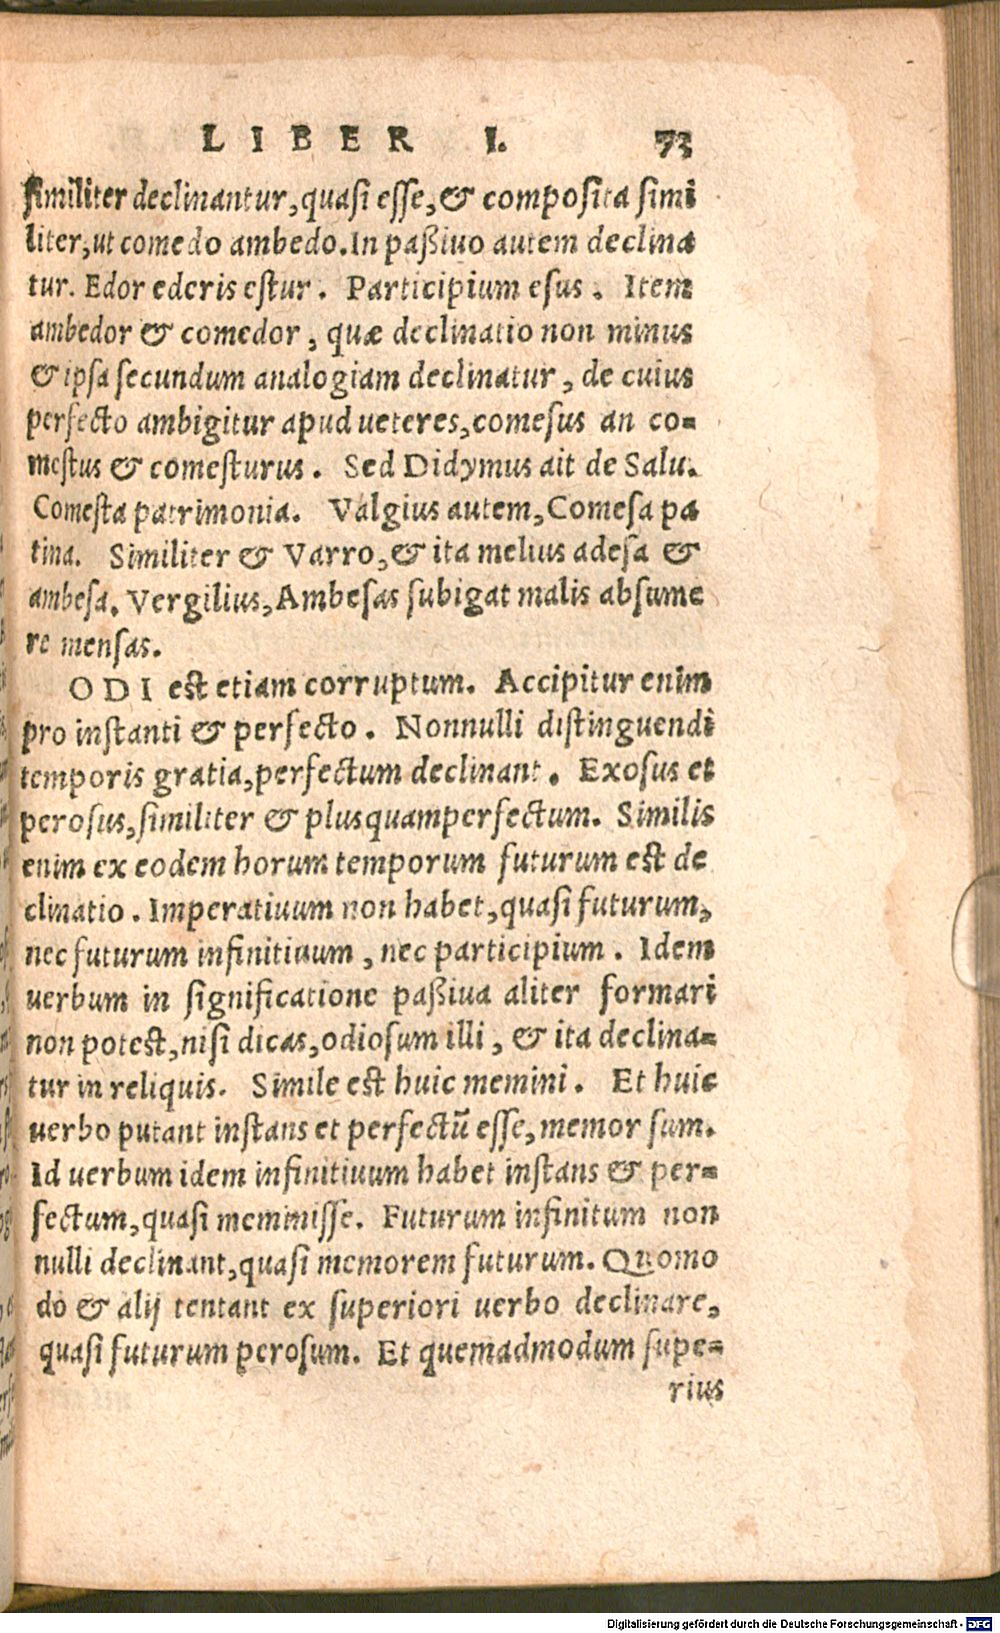 LIBER I. 73
similiter declinantur, quasi esse, & composita simi
liter, ut comedo ambedo. In paßiuo autem declina
tur. Edor ederis estur. Participium esus. Item
ambedor & comedor, quæ declinatio non minus
& ipsa secundum analogiam declinatur, de cuius
perfecto ambigitur apud ueteres, comesus an co-
mestus & comesturus. Sed Didymus ait de Salu.
Comesta patrimonia. Valgius autem, Comesa pa
tina. Similiter & Varro, & ita melius adesa &
ambesa. Vergilius, Ambesas subigat malis absume
re mensas.
ODI est etiam corruptum. Accipitur enim
pro instanti & perfecto. Nonnulli distinguendi
temporis gratia, perfectum declinant. Exosus et
perosus, similiter & plusquamperfectum. Similis
enim ex eodem horum temporum futurum est de
clinatio. Imperatiuum non habet, quasi futurum,
nec futurum infinitiuum, nec participium. Idem
uerbum in significatione paßiua aliter formari
non potest, nisi dicas, odiosum illi, & ita declina-
tur in reliquis. Simile est huic memini. Et huic
uerbo putant instans et perfectũ esse, memor sum.
Id uerbum idem infinitiuum habet instans & per-
fectum, quasi meminisse. Futurum infinitum non
nulli declinant, quasi memorem futurum. Quomo
do & alij tentant ex superiori uerbo declinare,
quasi futurum perosum. Et quemadmodum supe-
rius
Digitalisierung gefördert durch die Deutsche Forschungsgemeinschaft - DFG